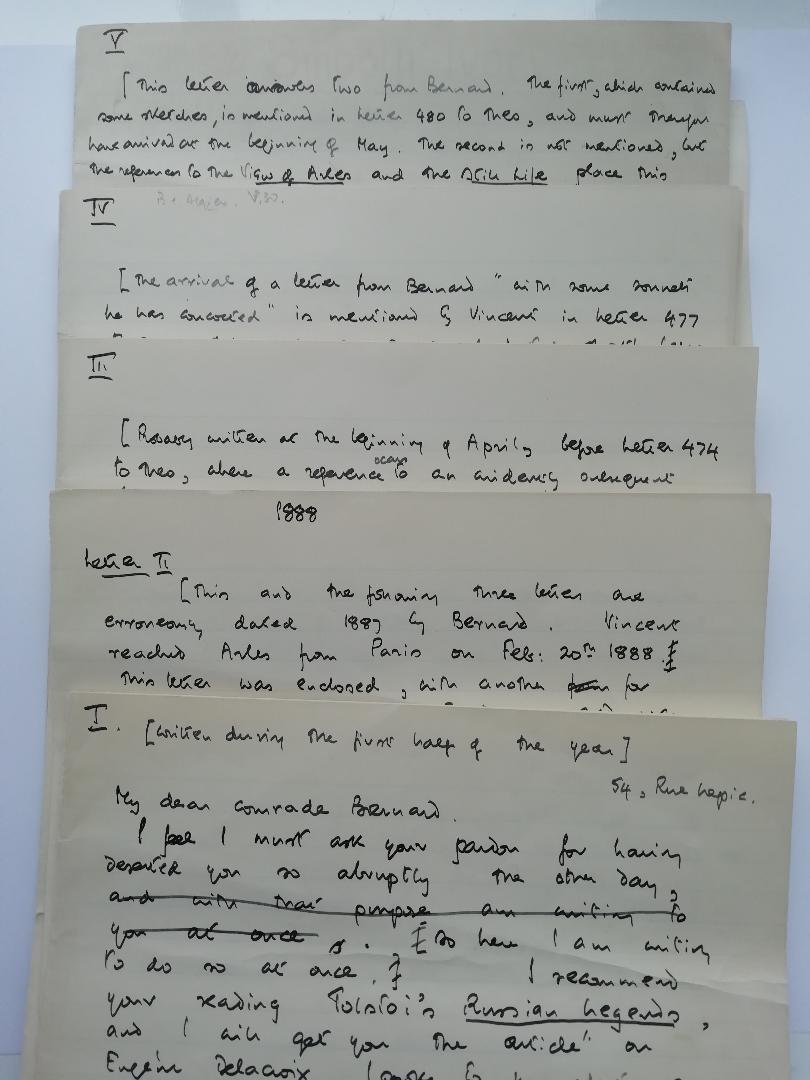 V
[This letter answers two from Bernard. The first, which contained
some sketches, is mentioned in Letter 480 to Theo, and must therefore
have arrived at the beginning of May. The second is not mentioned, but
the references to the View of Arles and the Still Life place this
IV
[The arrival of a letter from Bernard "with some sonnets
he has concocted" is mentioned by Vincent in Letter 477
III
[Probably written at the beginning of April, before Letter 474
occurs
to Theo, where a reference to an evidently subsequent
1888
Letter II
[This and the following three letters are
erroneously dated 1887 by Bernard. Vincent
reached Arles from Paris on Feb: 20th 1888.
This letter was enclosed, with another for
I. [Written during the first half of the year]
54, Rue Lepic.
My dear comrade Bernard.
I feel I must ask your pardon for having
deserted you so abruptly the other day,
and with that purpose am writing to
you at once. [So here I am writing
to do so at once.] I recommend
your reading Tolstoi's Russian Legends,
and I will get you the article on
Eugène Delacroix